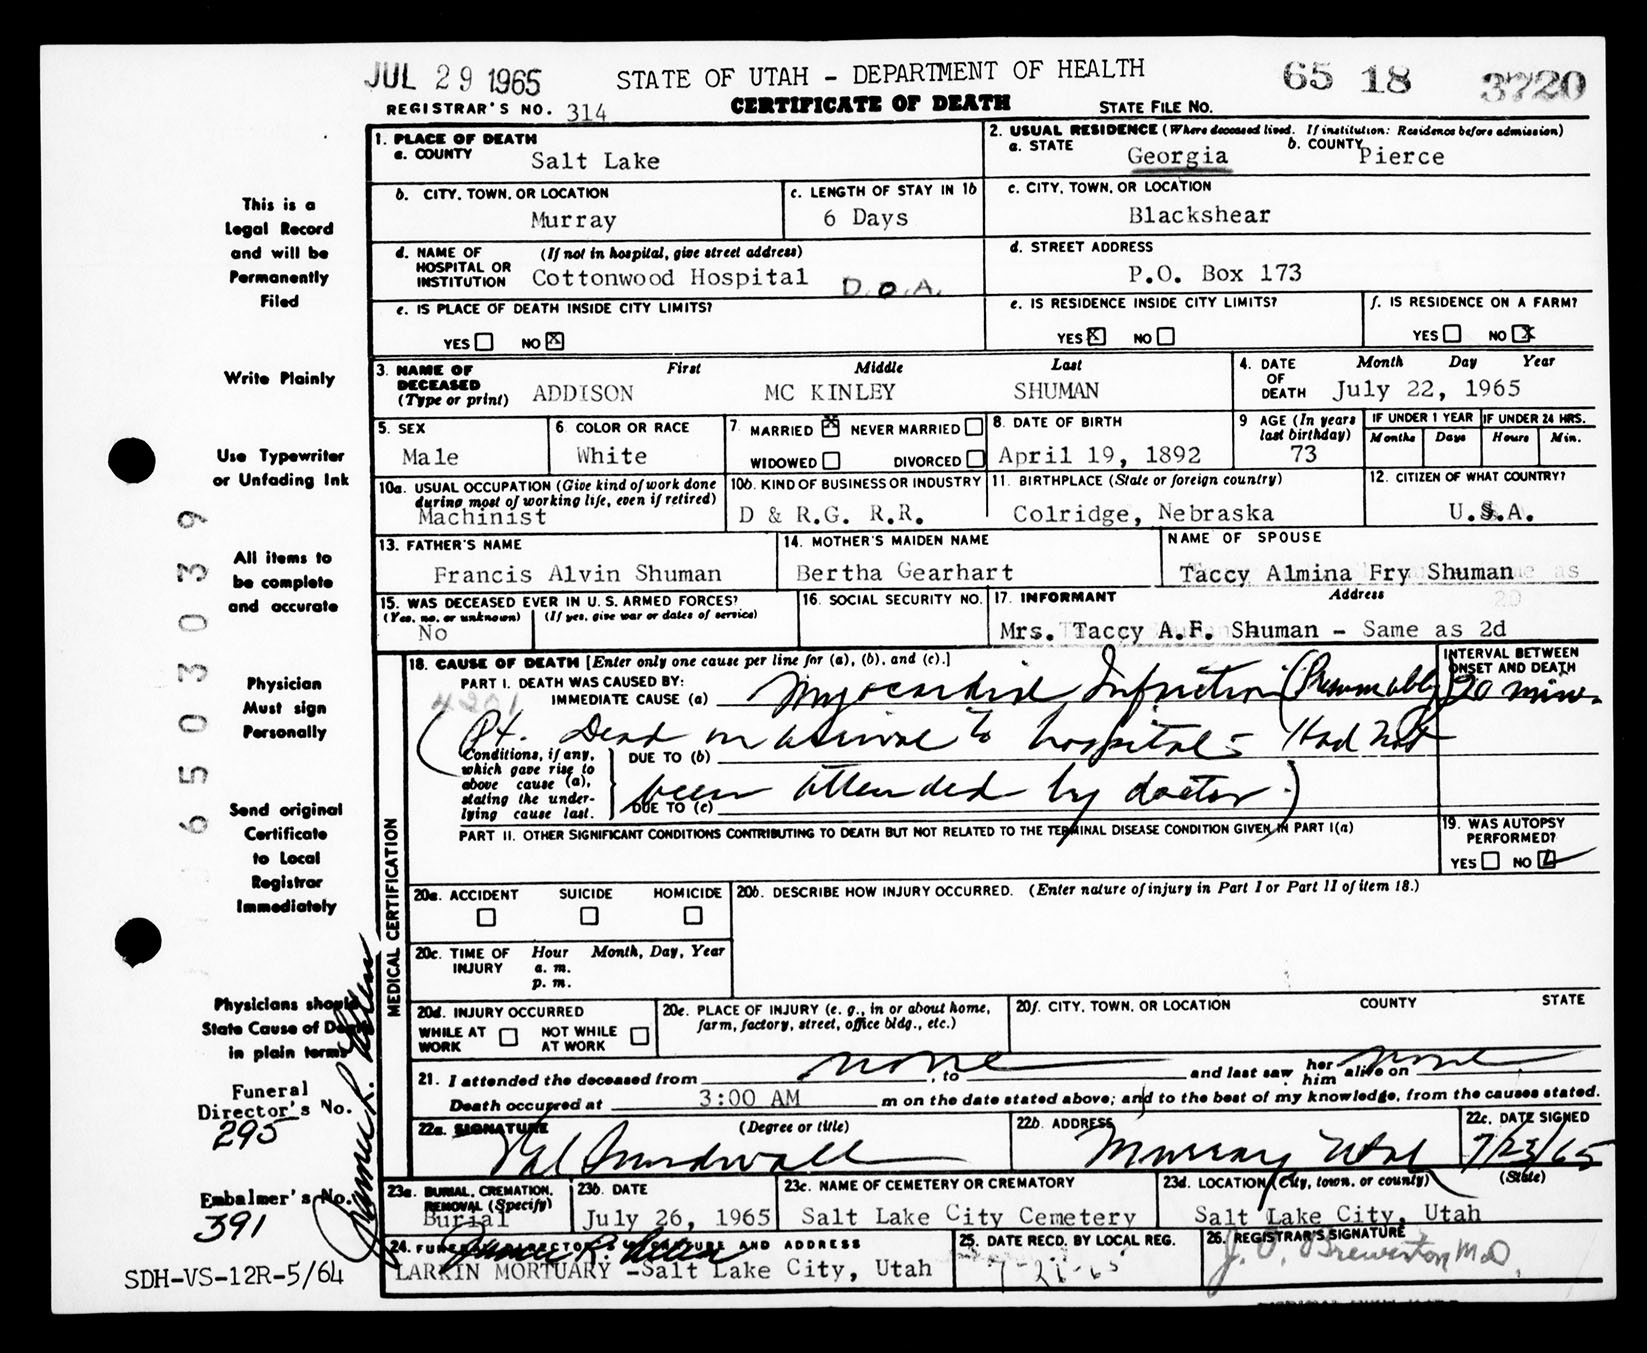 JUL 29 1965
STATE OF UTAH - DEPARTMENT OF HEALTH
65 18 3720
REGISTRAR'S NO. 314
CERTIFICATE OF DEATH
STATE FILE NO.
1. PLACE OF DEATH
a. COUNTY Salt Lake
2. USUAL RESIDENCE (Where deceased lived. If institution: Residence before admission)
a. STATE Georgia
b. COUNTY Pierce
b. CITY, TOWN, OR LOCATION
Murray
c. LENGTH OF STAY IN 1b
6 Days
c. CITY, TOWN, OR LOCATION
Blackshear
d. NAME OF HOSPITAL OR INSTITUTION
(If not in hospital, give street address)
Cottonwood Hospital D.O.A.
d. STREET ADDRESS
P.O. Box 173
e. IS PLACE OF DEATH INSIDE CITY LIMITS?
YES NO X
e. IS RESIDENCE INSIDE CITY LIMITS?
YES X NO
f. IS RESIDENCE ON A FARM?
YES NO X
3. NAME OF DECEASED (Type or print)
First Middle Last
ADDISON MC KINLEY SHUMAN
4. DATE OF DEATH
Month Day Year
July 22, 1965
5. SEX
Male
6. COLOR OR RACE
White
7. MARRIED X NEVER MARRIED
WIDOWED DIVORCED
8. DATE OF BIRTH
April 19, 1892
9 AGE (In years last birthday)
73
IF UNDER 1 YEAR
Months Days
IF UNDER 24 HRS.
Hours Min.
10a. USUAL OCCUPATION (Give kind of work done during most of working life, even if retired)
Machinist
10b. KIND OF BUSINESS OR INDUSTRY
D & R.G. R.R.
11. BIRTHPLACE (State or foreign country)
Colridge, Nebraska
12. CITIZEN OF WHAT COUNTRY?
U.S.A.
13. FATHER'S NAME
Francis Alvin Shuman
14. MOTHER'S MAIDEN NAME
Bertha Gearhart
NAME OF SPOUSE
Taccy Almina Fry Shuman
15. WAS DECEASED EVER IN U. S. ARMED FORCES?
(Yes, no, or unknown) (If yes, give war or dates of service)
No
16. SOCIAL SECURITY NO.
17. INFORMANT Address
Mrs. Taccy A.F. Shuman - Same as 2d
MEDICAL CERTIFICATION
18. CAUSE OF DEATH [Enter only one cause per line for (a), (b), and (c).]
INTERVAL BETWEEN ONSET AND DEATH
PART I. DEATH WAS CAUSED BY:
4201
IMMEDIATE CAUSE (a) Myocardial Infarction (Presumably) 20 mins.
(Pt. Dead on arrival to hospital - Had not
Conditions, if any, which gave rise to above cause (a), stating the under-lying cause last.
DUE TO (b)
been attended by doctor.)
DUE TO (c)
PART II. OTHER SIGNIFICANT CONDITIONS CONTRIBUTING TO DEATH BUT NOT RELATED TO THE TERMINAL DISEASE CONDITION GIVEN IN PART I(a)
19. WAS AUTOPSY PERFORMED?
YES NO
20a. ACCIDENT SUICIDE HOMICIDE
20b. DESCRIBE HOW INJURY OCCURRED. (Enter nature of injury in Part I or Part II of item 18.)
20c. TIME OF INJURY
Hour Month, Day, Year
a. m.
p. m.
20d. INJURY OCCURRED
WHILE AT WORK NOT WHILE AT WORK
20e. PLACE OF INJURY (e. g., in or about home, farm, factory, street, office bldg., etc.)
20f. CITY, TOWN, OR LOCATION COUNTY STATE
21. I attended the deceased from none, to and last saw her him alive on none
Death occurred at 3:00 AM m on the date stated above; and to the best of my knowledge, from the causes stated.
22a. SIGNATURE (Degree or title)
Val Sundwall
22b. ADDRESS
Murray Utah
22c. DATE SIGNED
7/23/65
23a. BURIAL, CREMATION, REMOVAL (Specify)
Burial
23b. DATE
July 26, 1965
23c. NAME OF CEMETERY OR CREMATORY
Salt Lake City Cemetery
23d. LOCATION (City, town, or county) (State)
Salt Lake City, Utah
24. FUNERAL DIRECTOR'S SIGNATURE AND ADDRESS
LARKIN MORTUARY -Salt Lake City, Utah
25. DATE RECD. BY LOCAL REG.
26. REGISTRAR'S SIGNATURE
J. O. Brewerton M.D.
This is a
Legal Record
and will be
Permanently
Filed
Write Plainly
Use Typewriter
or Unfading Ink
All items to
be complete
and accurate
Physician
Must sign
Personally
Send original
Certificate
to Local
Registrar
Immediately
Physicians should
State Cause of Death
in plain terms
Funeral
Director's No.
295
Embalmer's No.
391
SDH-VS-12R-5/64
65030039